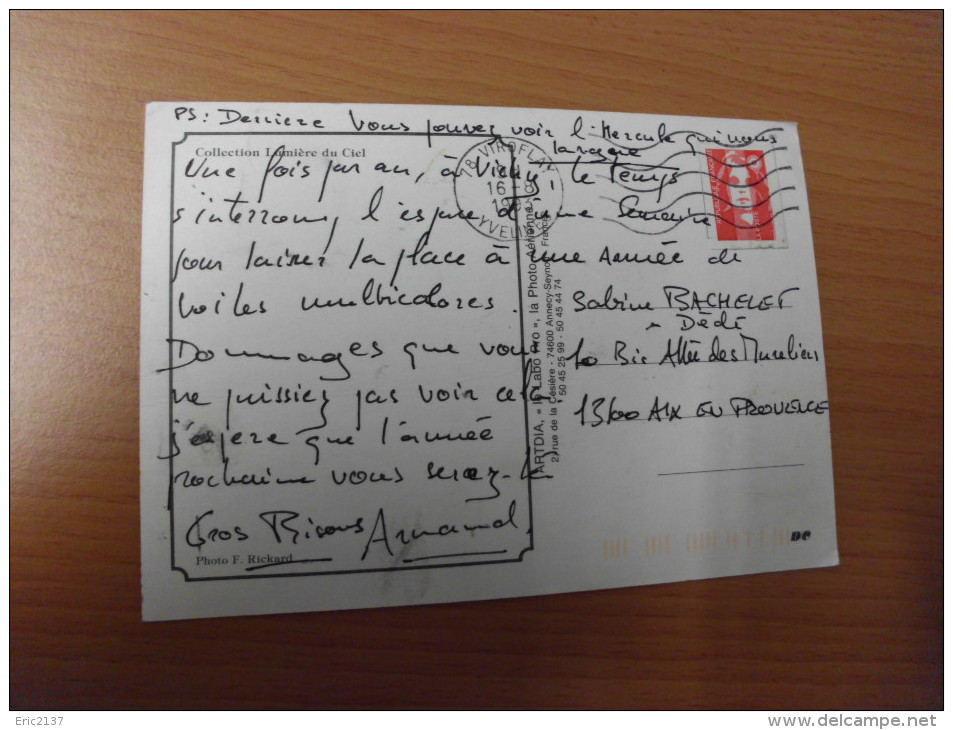 PS: Derriere Vous pouvez voir l'Hercule qui nous
Collection Lumière du Ciel
Une fois par an, à Vichy, le Temps
s'interromp, l'espace d'une Semaine
pour laisser la place à une Armée de
voiles multicolores.
Dommages que vous
ne puissiez pas voir cela
j'espere que l'année
prochaine vous serez-là
Gros Bisous Armand
Photo F. Rickard
78 VIROFLAY
16 -
19
YVELINES
ARTDIA, « le Labo Pro », la Photo Aérienne
2, rue de la Césière - 74600 Annecy-Seynod France
50 45 25 99 - 50 45 44 74
Sabine BACHELET
Dédé
10 Bis Allée des
13100 AIX EN PROVENCE
DC
Eric2137
www.delcampe.net